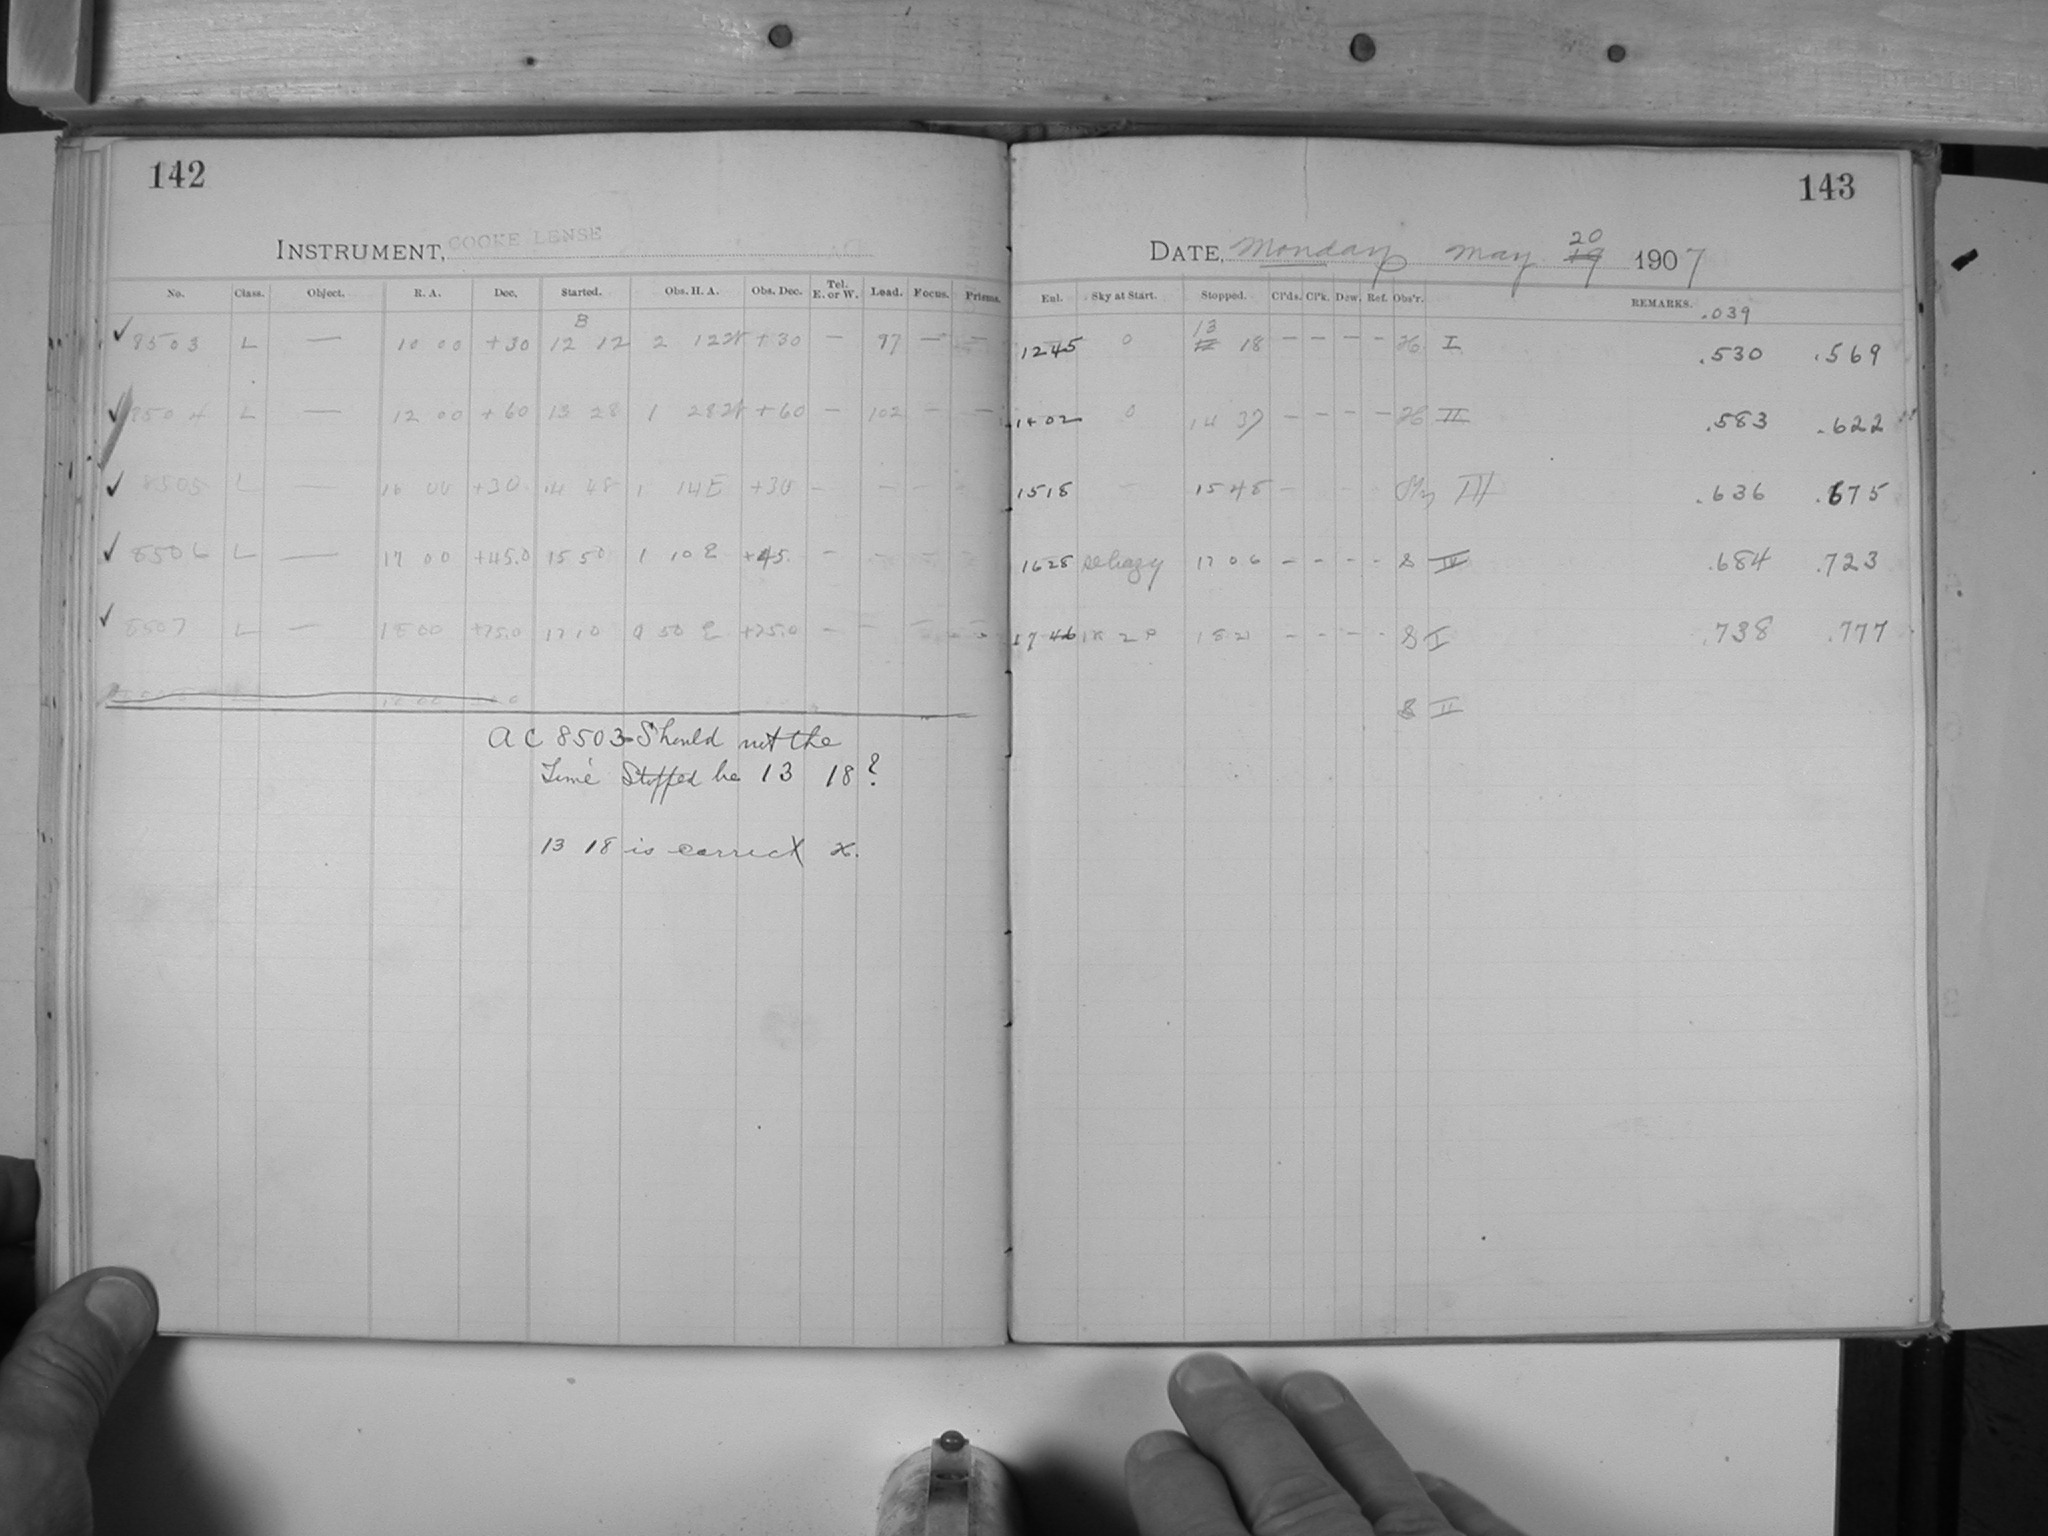 142
INSTRUMENT, COOKE LENSE
No. Class. Object. R. A. Dec. Started. Obs. H. A. Obs. Dec. Tel. E. or W. Load. Focus. Prisms.
8503 L — 10 00 +30 12 12 2 12 W +30 — 97 — —
8504 L — 12 00 +60 13 28 1 28 W +60 — 102 — —
8505 L — 16 00 +30 14 48 1 14 E +30 — — — —
8506 L — 17 00 +45.0 15 50 1 10 E +45. — — — —
8507 L — 18 00 +75.0 17 10 0 50 E +75.0 — — — —
A C 8503 - Should not the
Time Stopped be 13 18?
13 18 is correct
143
DATE, Monday May 19 20 1907
Eul. Sky at Start. Stopped. Cl'ds. Cl'k. Dew. Ref. Obs'r. REMARKS.
.039
1245 0 12 13 18 — — — — I .530 .569
1402 0 14 37 — — — — II .583 .622
1518 — 1548 — — — III .636 .675
1628 hazy 1706 — — — — S IV .684 .723
1746 — — — — S I .738 .777
S II